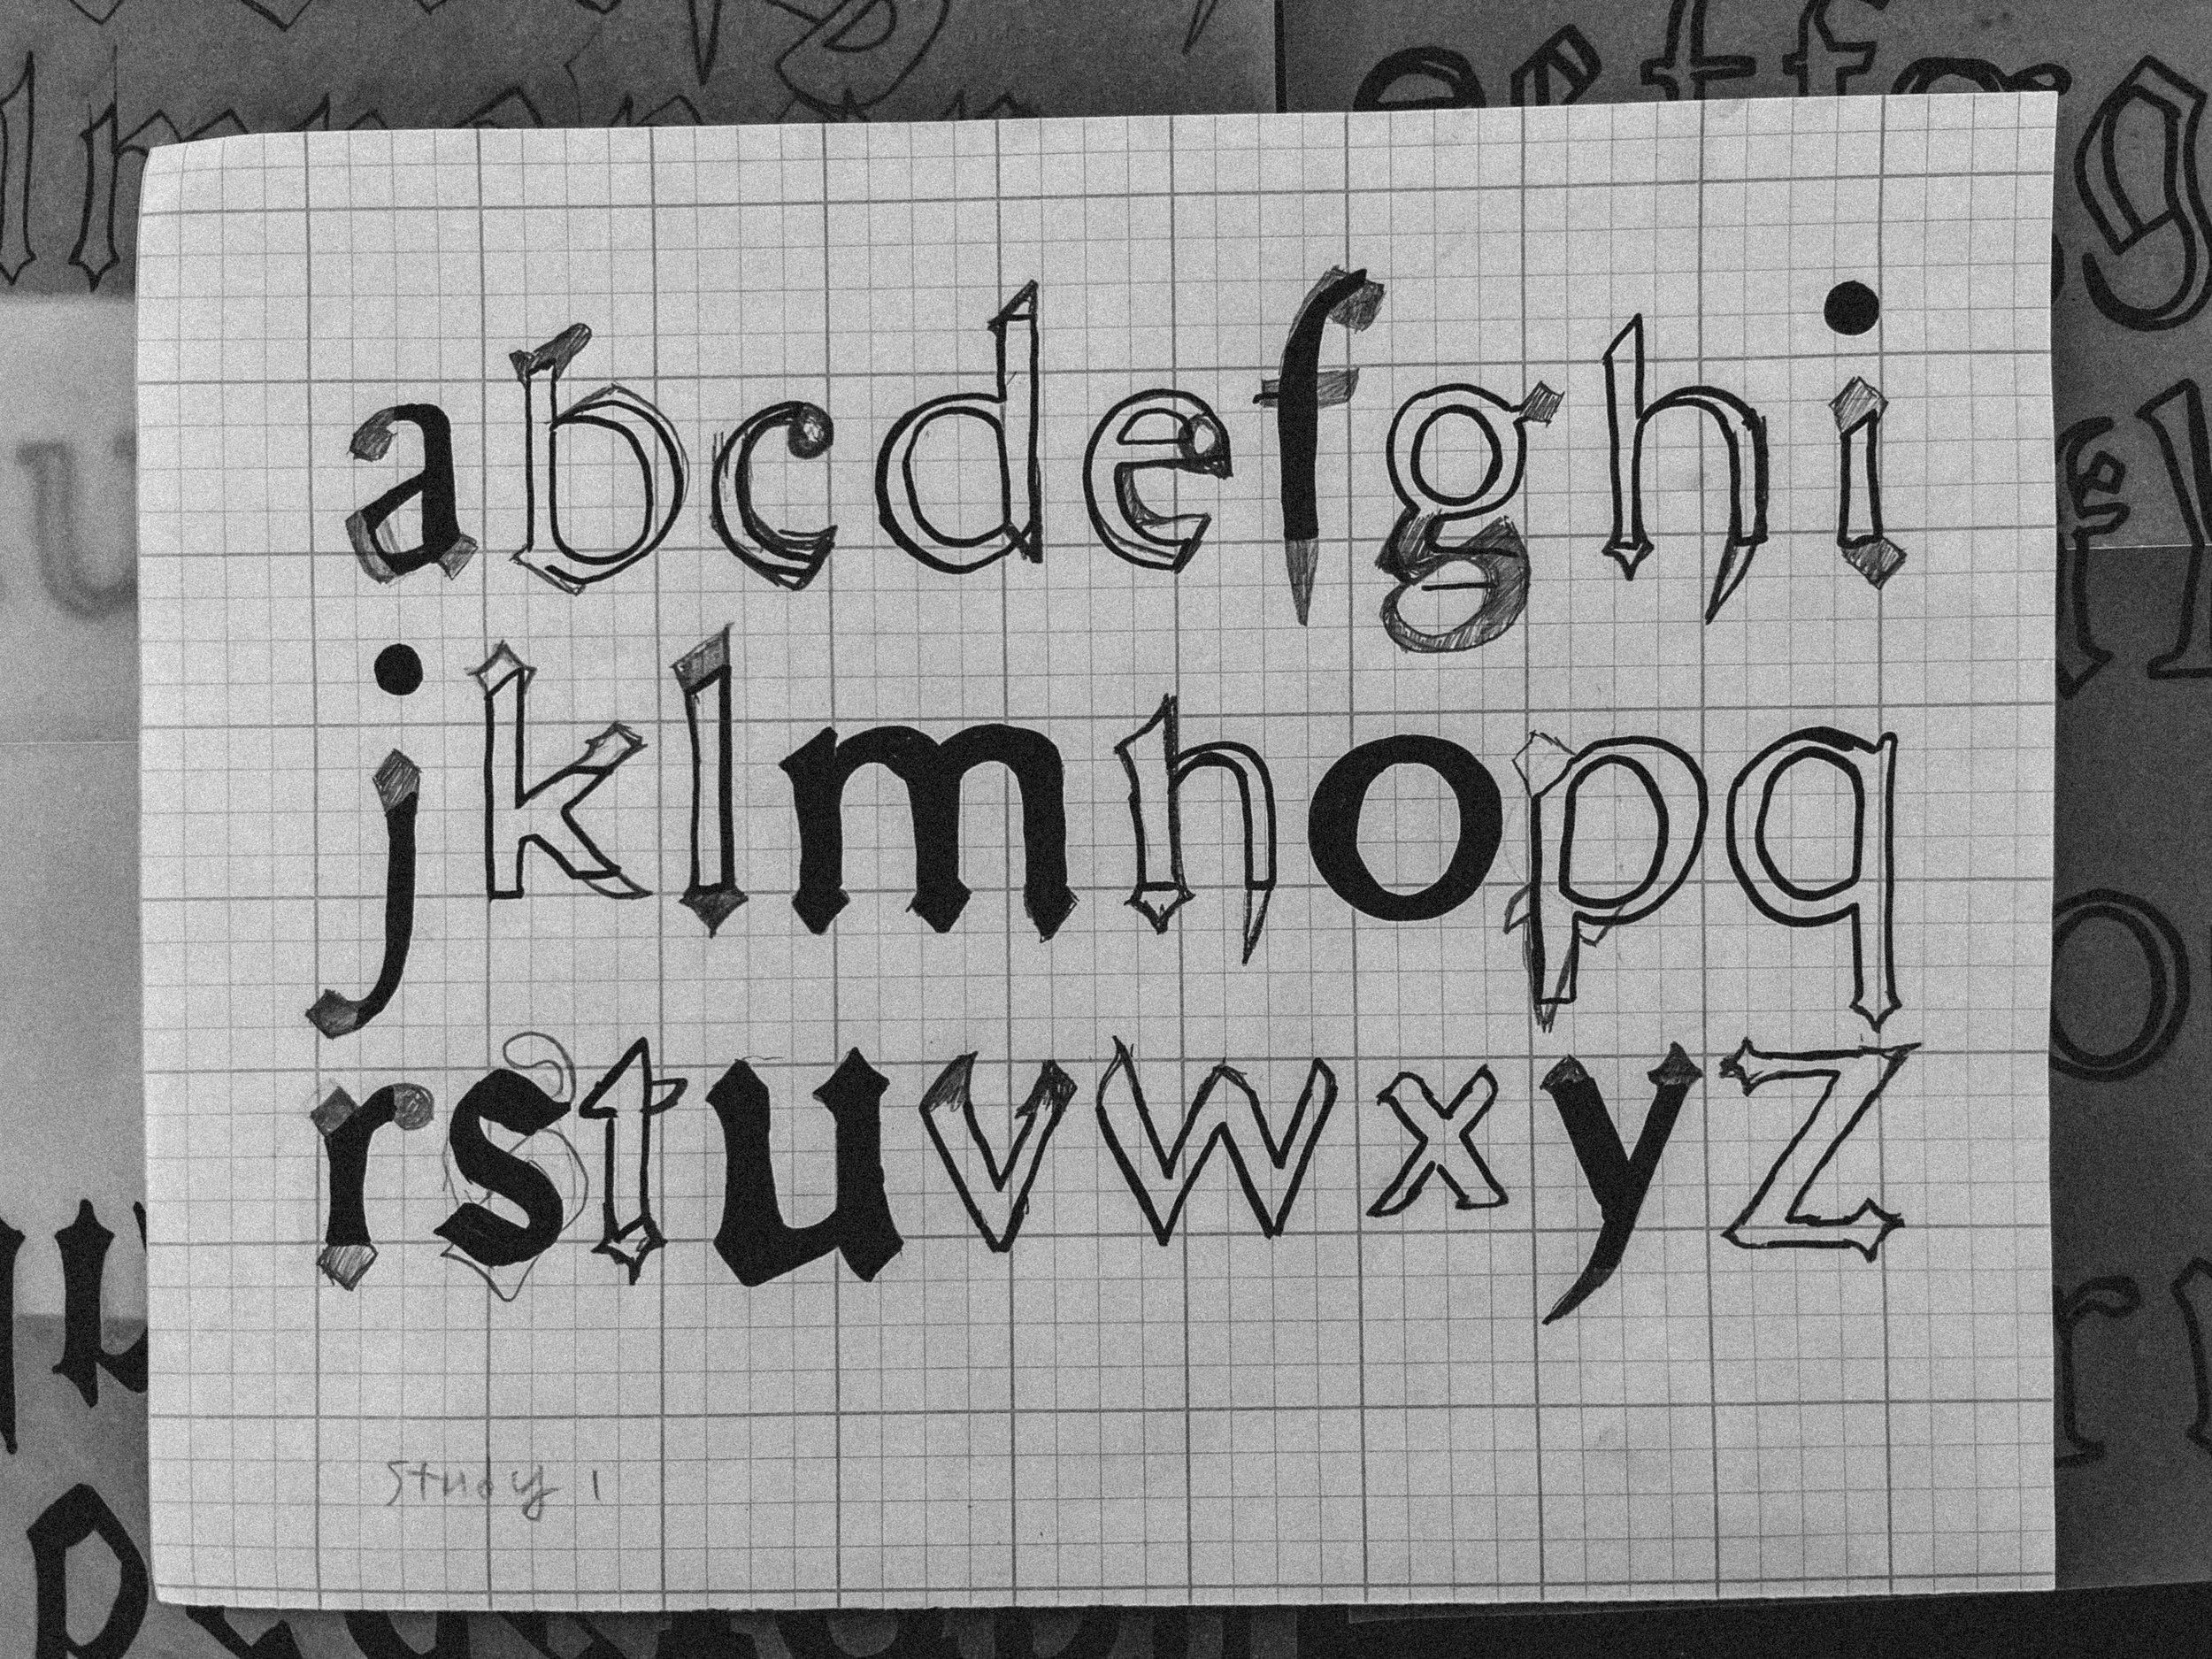 abcdefghi
jklmnopq
rstuvwxyz
Study 1